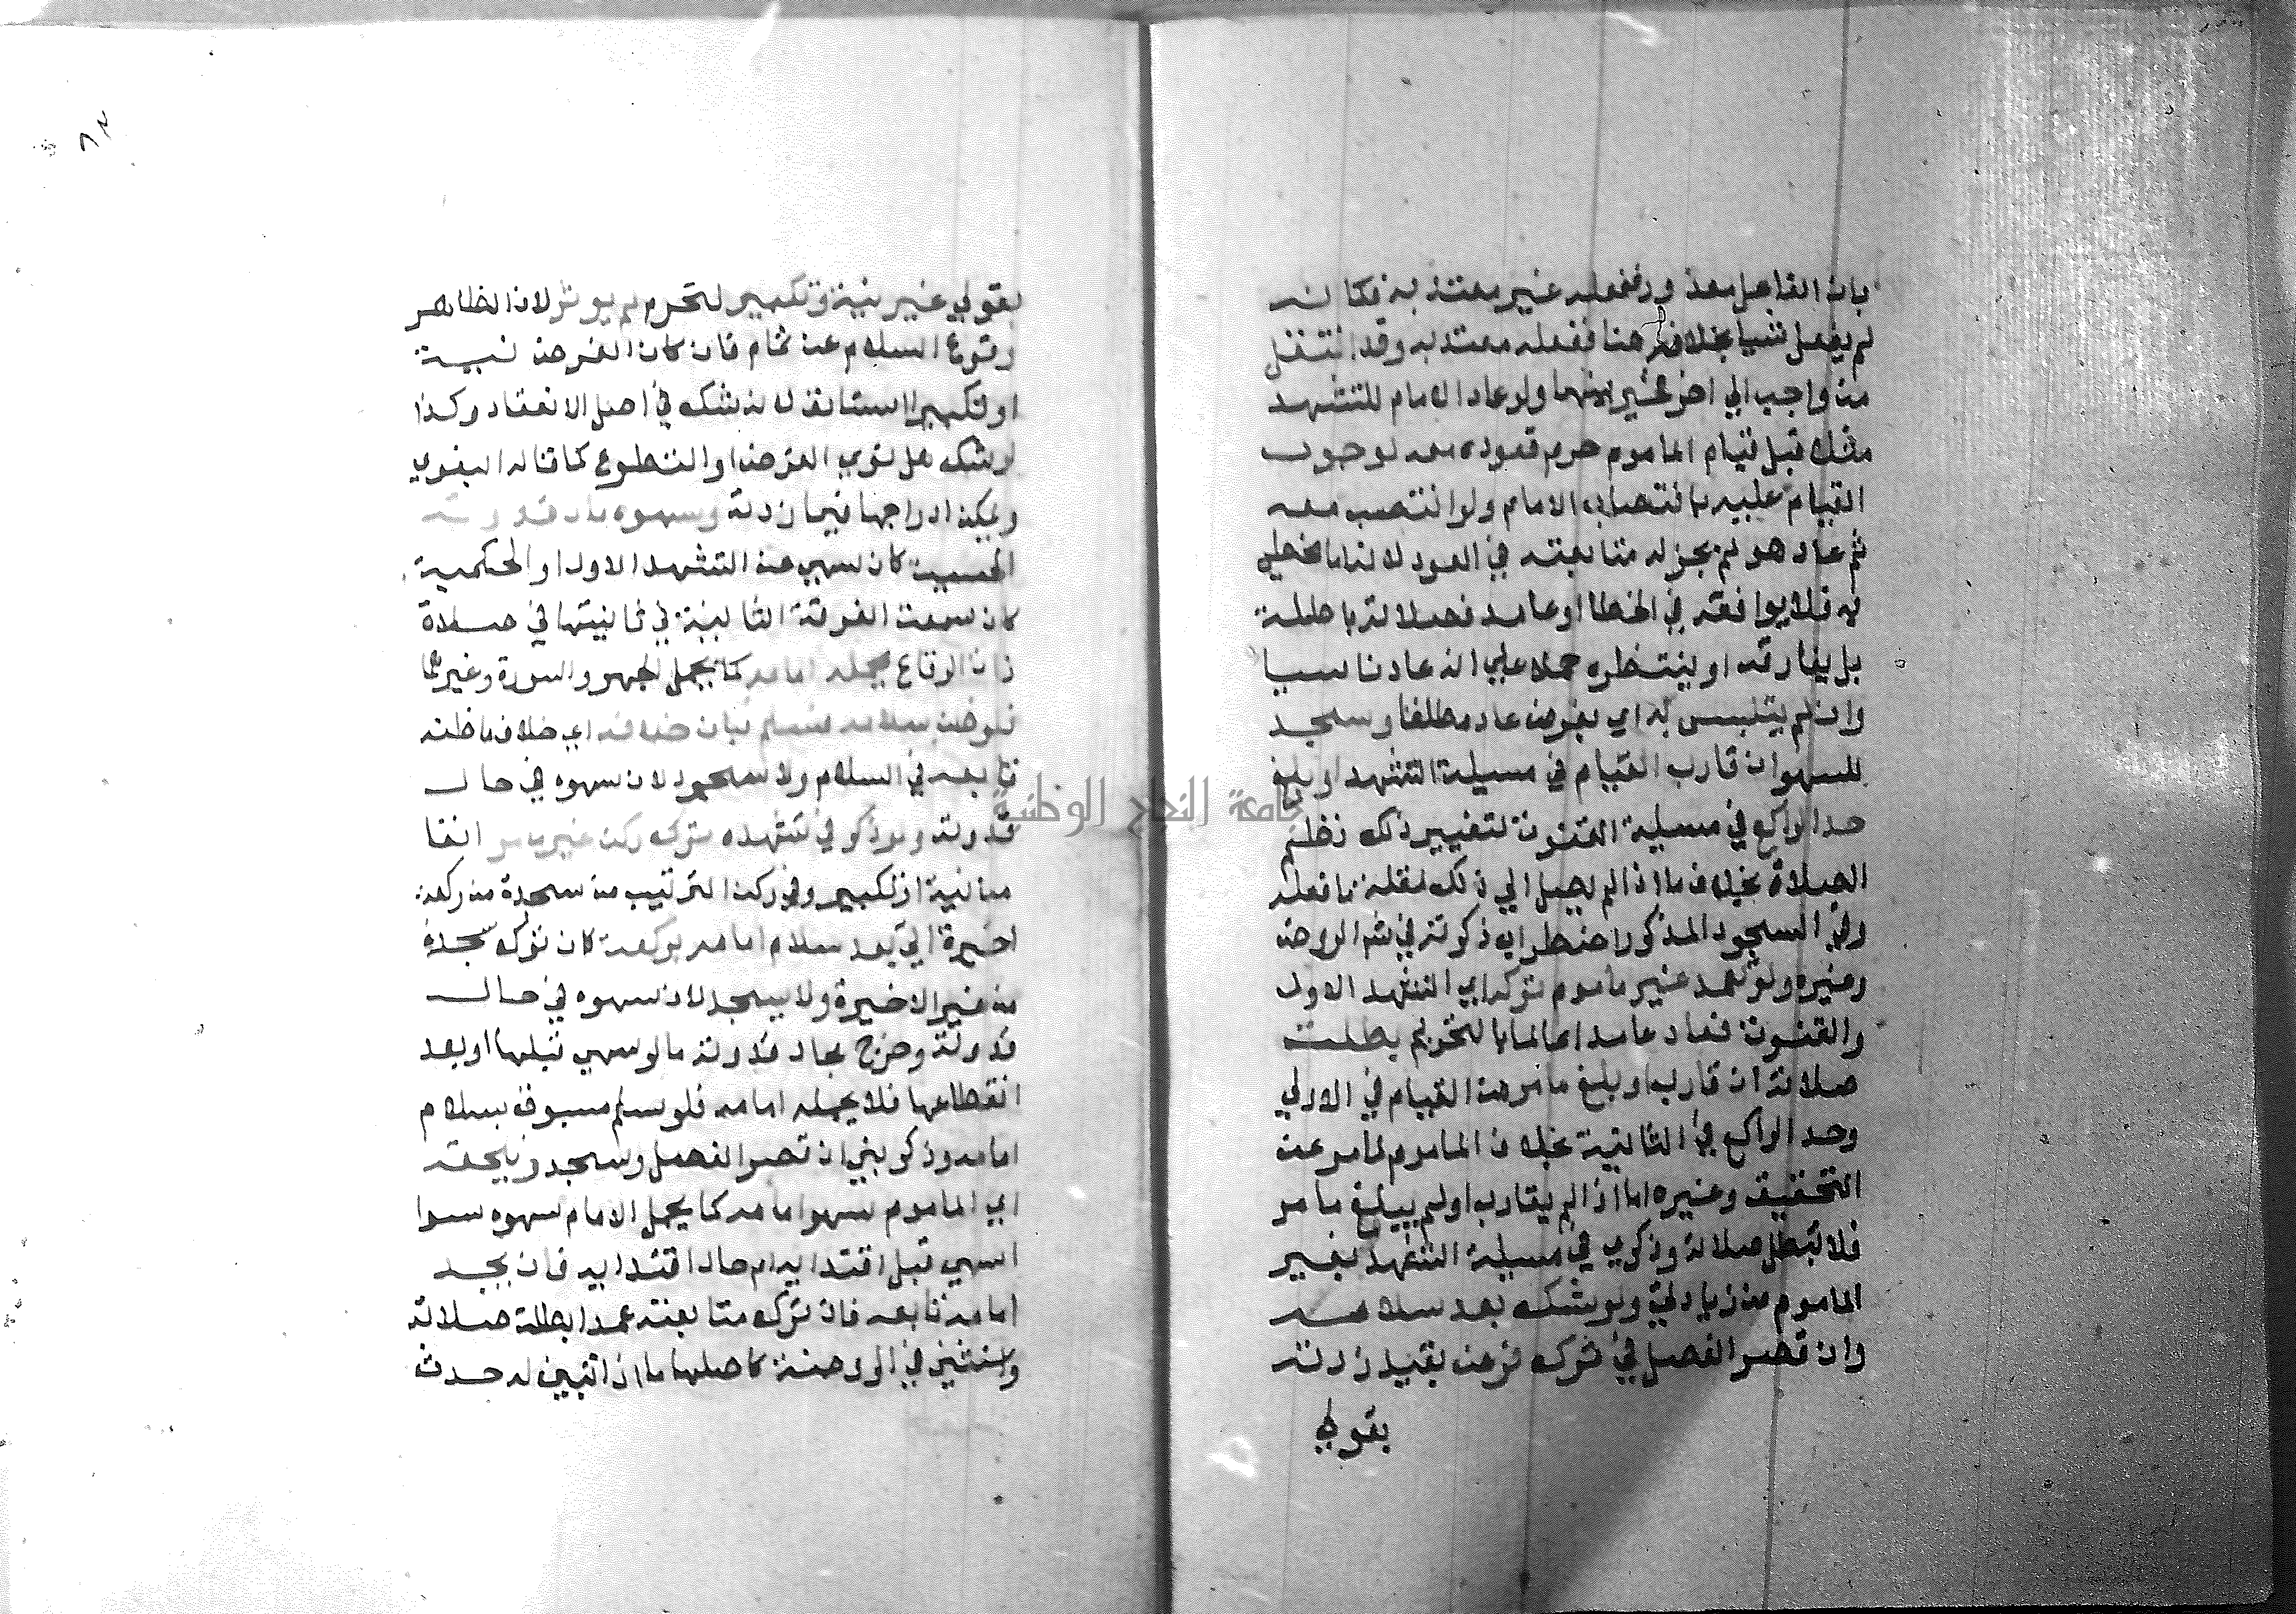 بان الفاعل معذور ففعله غير معتد به فكانه
لم يفعل شيا بخلافه هنا ففعله معتد به وقد انتقل
من واجب الي اخر فخير بينهما ولو عاد الامام للتشهد
مثلا قبل قيام الماموم حرم قعوده معه لوجوب
القيام عليه بانتصاب الامام ولو انتصب معه
ثم عاد هو لم يجز له متابعته في العود لانه اما مخطي
به فلا يوافقه في الخطا او عامد فصلاته باطلة
بل يفارقه او ينتظره حملا علي انه عاد ناسيا
وان لم يتلبس به اي بفرض عاد مطلقا وسجد
للسهو ان قارب القيام في مسيلة التشهد او بلغ
حد الراكع في مسيلة القنوت لتغيير ذلك نظم
الصلاة بخلاف ما اذا لم يصل الي ذلك لقلة ما فعله
وفي السجود المذكور اضطراب ذكرته في شرح الروض
وغيره ولو تعمد غير ماموم تركه اي التشهد الاول
والقنوت فعاد عامدا عالما بالتحريم بطلت
صلاته ان قارب او بلغ ما مر من القيام في الاولي
وحد الراكع في الثانية بخلاف الماموم لما مر عن
التحقيق وغيره اما اذا لم يقارب او لم يبلغ ما مر
فلا تبطل صلاته وذكري في مسيلة التشهد بغير
الماموم من زيادتي ولو شك بعد سلامه
وان قصر الفصل في ترك فرض بقيد زدته
بقولي
بقولي غير نية وتكبير لتحرم لم يوثر لان الظاهر
وقوع السلام عن تمام فان كان الفرض نية
او تكبيرا استانف لانه شك في اصل الانعقاد وكذا
لو شك هل نوي الفرض او التطوع كما قاله البغوي
ويمكن ادراجها فيما زدته وسهوه حال قدوته
الحسية كان سهي عن التشهد الاول او الحكمية
كان سهت الفرقة الثانية في ثانيتها في صلاة
ذات الرقاع يحمله امامه كما يحمل الجهر والسورة وغيرهما
فلو ظن سلامه فسلم فبان خلافه اي خلاف ما ظنه
تابعه في السلام ولا سجود لان سهوه في حال
قدوته ولو ذكر في تشهده ترك ركن غير ما مر انفا
من نية او تكبير وفي ركن الترتيب من سجدة من ركعة
اخيرة اتي بعد سلام امامه بركعة كان ترك سجدة
من غير الاخيرة ولا يسجد لان سهوه في حال
قدوته وخرج بحال قدوته ما لو سهي قبلها او بعد
انقطاعها فلا يحمله امامه فلو سلم مسبوق بسلام
امامه وذكر بني ان قصر الفصل وسجد ويلحقه
اي الماموم سهو امامه كما يحمل الامام سهوه سوا
اسهي قبل اقتدايه ام حال اقتدايه فان سجد
امامه تابعه فان ترك متابعته عمدا بطلت صلاته
واستثني في الروضة كاصلها ما اذا تبين له حدث
٨٢
جامعة النجاح الوطنية